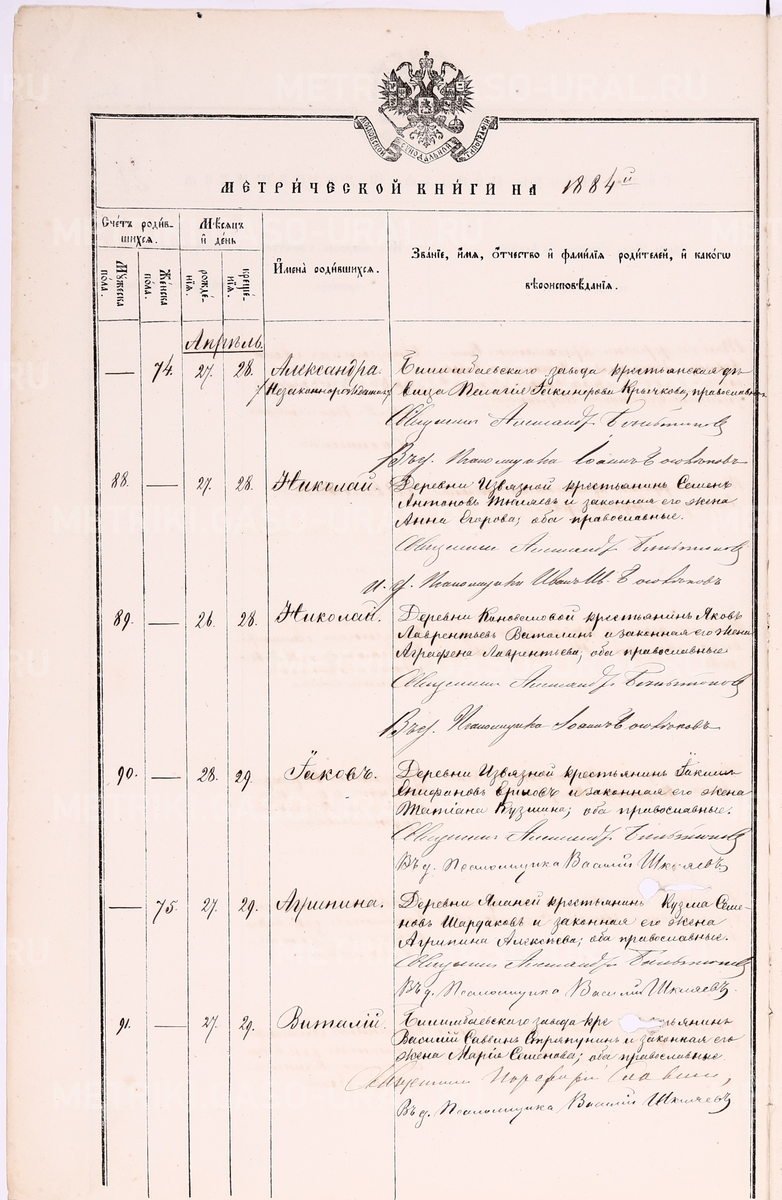 МЕТРИЧЕСКОЙ КНИГИ НА 1884й
Счетъ родив-
шихся.
Мѣсяцъ
и день
Имена родившихся.
Званіе, имя, отчество и фамилія родителей, и какогѡ
вѣроисповѣданія.
Мужеска
пола.
Женска
пола.
рожде-
нія.
креще-
нія.
Апрѣль
— 74. 27. 28. Александра. Билимбаевскаго завода крестьянская дѣ-
/Незаконнорожденная/ вица Пелагія Крючкова, православная
Священникъ Александръ
Въ д. Псаломщика Іоаннъ
88. — 27. 28. Николай. Деревни Извязной крестьянинъ Семенъ
Антоновъ и законная его жена
Анна Егорова; оба православные.
Священникъ Александръ
и. д. Псаломщика Иванъ
89. — 26. 28. Николай. Деревни Коноваловой крестьянинъ Яковъ
Лаврентьевъ Ваталинъ и законная его жена
Аграфена Лаврентьева, оба православные
Священникъ Александръ
Въ д. Псаломщика Іоаннъ
90. — 28. 29 Іаковъ. Деревни Извязной крестьянинъ Іакимъ
Епифановъ и законная его жена
Татіана Кузмина; оба православные.
Священникъ Александръ
Въ д. Псаломщика Василій Шкляевъ
— 75. 27. 29. Агрипина. Деревни крестьянинъ Кузма Семе-
новъ Шардаковъ и законная его жена
Агрипина Алексѣева; оба православные.
Священникъ Александръ
Въ д. Псаломщика Василій Шкляевъ.
91. — 27. 29. Виталій. Билимбаевскаго завода крестьянинъ
Василій Саввинъ Стряпунинъ и законная его
жена Марія Семенова; оба православные
Священникъ Порфирій Славнинъ,
Въ д. Псаломщика Василій Шкляевъ